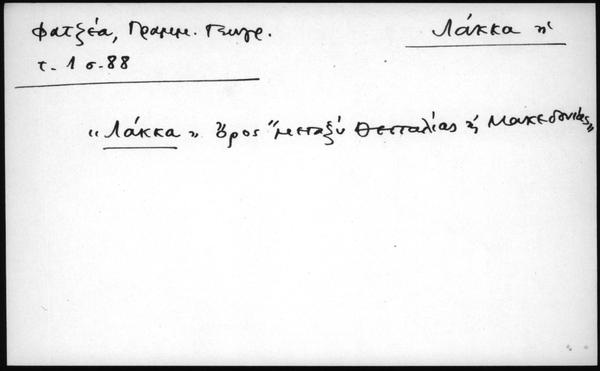 Φατζέα, Γραμμ. Γεωγρ.
Λάκκα η
τ. 1 σ. 88
"Λάκκα" Όρος "μεταξύ Θετταλίας ή Μακεδονίας"